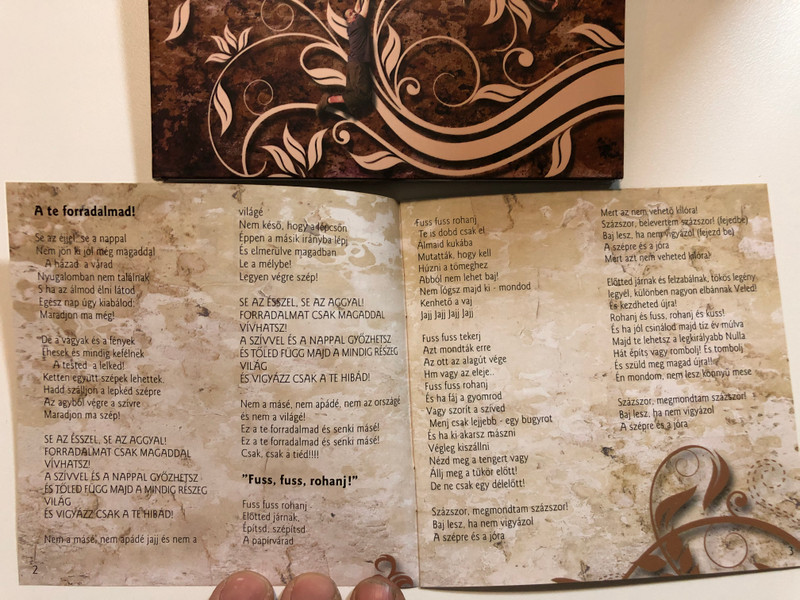 A te forradalmad!
Se az éjjel, se a nappal
Nem jön ki jól meg magaddal
A házad a várad
Nyugalomban nem találnak
S ha az álmod élni látod
Egész nap úgy kiabálod:
Maradjon ma még!
De a vágyak és a fények
Éhesek és mindig kefélnek
A tested a lelked!
Ketten együtt szépek lehettek
Hadd szálljon a lepkéd szépre
Az agyból végre a szívre
Maradjon ma szép!
SE AZ ÉSSZEL, SE AZ AGGYAL!
FORRADALMAT CSAK MAGADDAL
VÍVHATSZ!
A SZÍVVEL ÉS A NAPPAL GYŐZHETSZ
ÉS TŐLED FÜGG MAJD A MINDIG RÉSZEG
VILÁG
ÉS VIGYÁZZ CSAK A TE HIBÁD!
Nem a másé, nem apádé jajj és nem a
2
világé
Nem késő, hogy a lépcsőn
Éppen a másik irányba lépj
És elmerülve magadban
Le a mélybe!
Legyen végre szép!
SE AZ ÉSSZEL, SE AZ AGGYAL!
FORRADALMAT CSAK MAGADDAL
VÍVHATSZ!
A SZÍVVEL ÉS A NAPPAL GYŐZHETSZ
ÉS TŐLED FÜGG MAJD A MINDIG RÉSZEG
VILÁG
ÉS VIGYÁZZ CSAK A TE HIBÁD!
Nem a másé, nem apádé, nem az országé
és nem a világé!
Ez a te forradalmad és senki másé!
Ez a te forradalmad és senki másé!
Csak, csak a tiéd!!!!
"Fuss, fuss, rohanj!"
Fuss fuss rohanj
Előtted járnak,
Építsd, szépítsd
A papírvárad
Fuss fuss rohanj
Te is dobd csak el
Álmaid kukába
Mutatták, hogy kell
Húzni a tömeghez
Abból nem lehet baj!
Nem lógsz majd ki - mondod
Kenhető a vaj
Jajj Jajj Jajj Jajj
Fuss fuss tekerj
Azt mondták erre
Az ott az alagút vége
Hm vagy az eleje..
Fuss fuss rohanj
És ha fáj a gyomrod
Vagy szorít a szíved
Menj csak lejjebb - egy bugyrot
És ha ki akarsz mászni
Végleg kiszállni
Nézd meg a tengert vagy
Állj meg a tükör előtt!
De ne csak egy délelőtt!
Százszor, megmondtam százszor!
Baj lesz, ha nem vigyázol
A szépre és a jóra
Mert az nem vehető kilóra!
Százszor, belevertem százszor! (fejedbe)
Baj lesz, ha nem vigyázol (fejezd be)
A szépre és a jóra
Mert azt nem veheted kilóra!
Előtted járnak és felzabálnak, tökös legény
legyél, különben nagyon elbánnak Veled!
És kezdheted újra!
Rohanj és fuss, rohanj és küss!
És ha jól csinálod majd tíz év múlva
Majd te lehetsz a legkirályabb Nulla
Hát építs vagy rombolj! És tombolj
És szüld meg magad újra!!
Én mondom, nem lesz könnyű mese
Százszor, megmondtam százszor!
Baj lesz, ha nem vigyázol
A szépre és a jóra
3